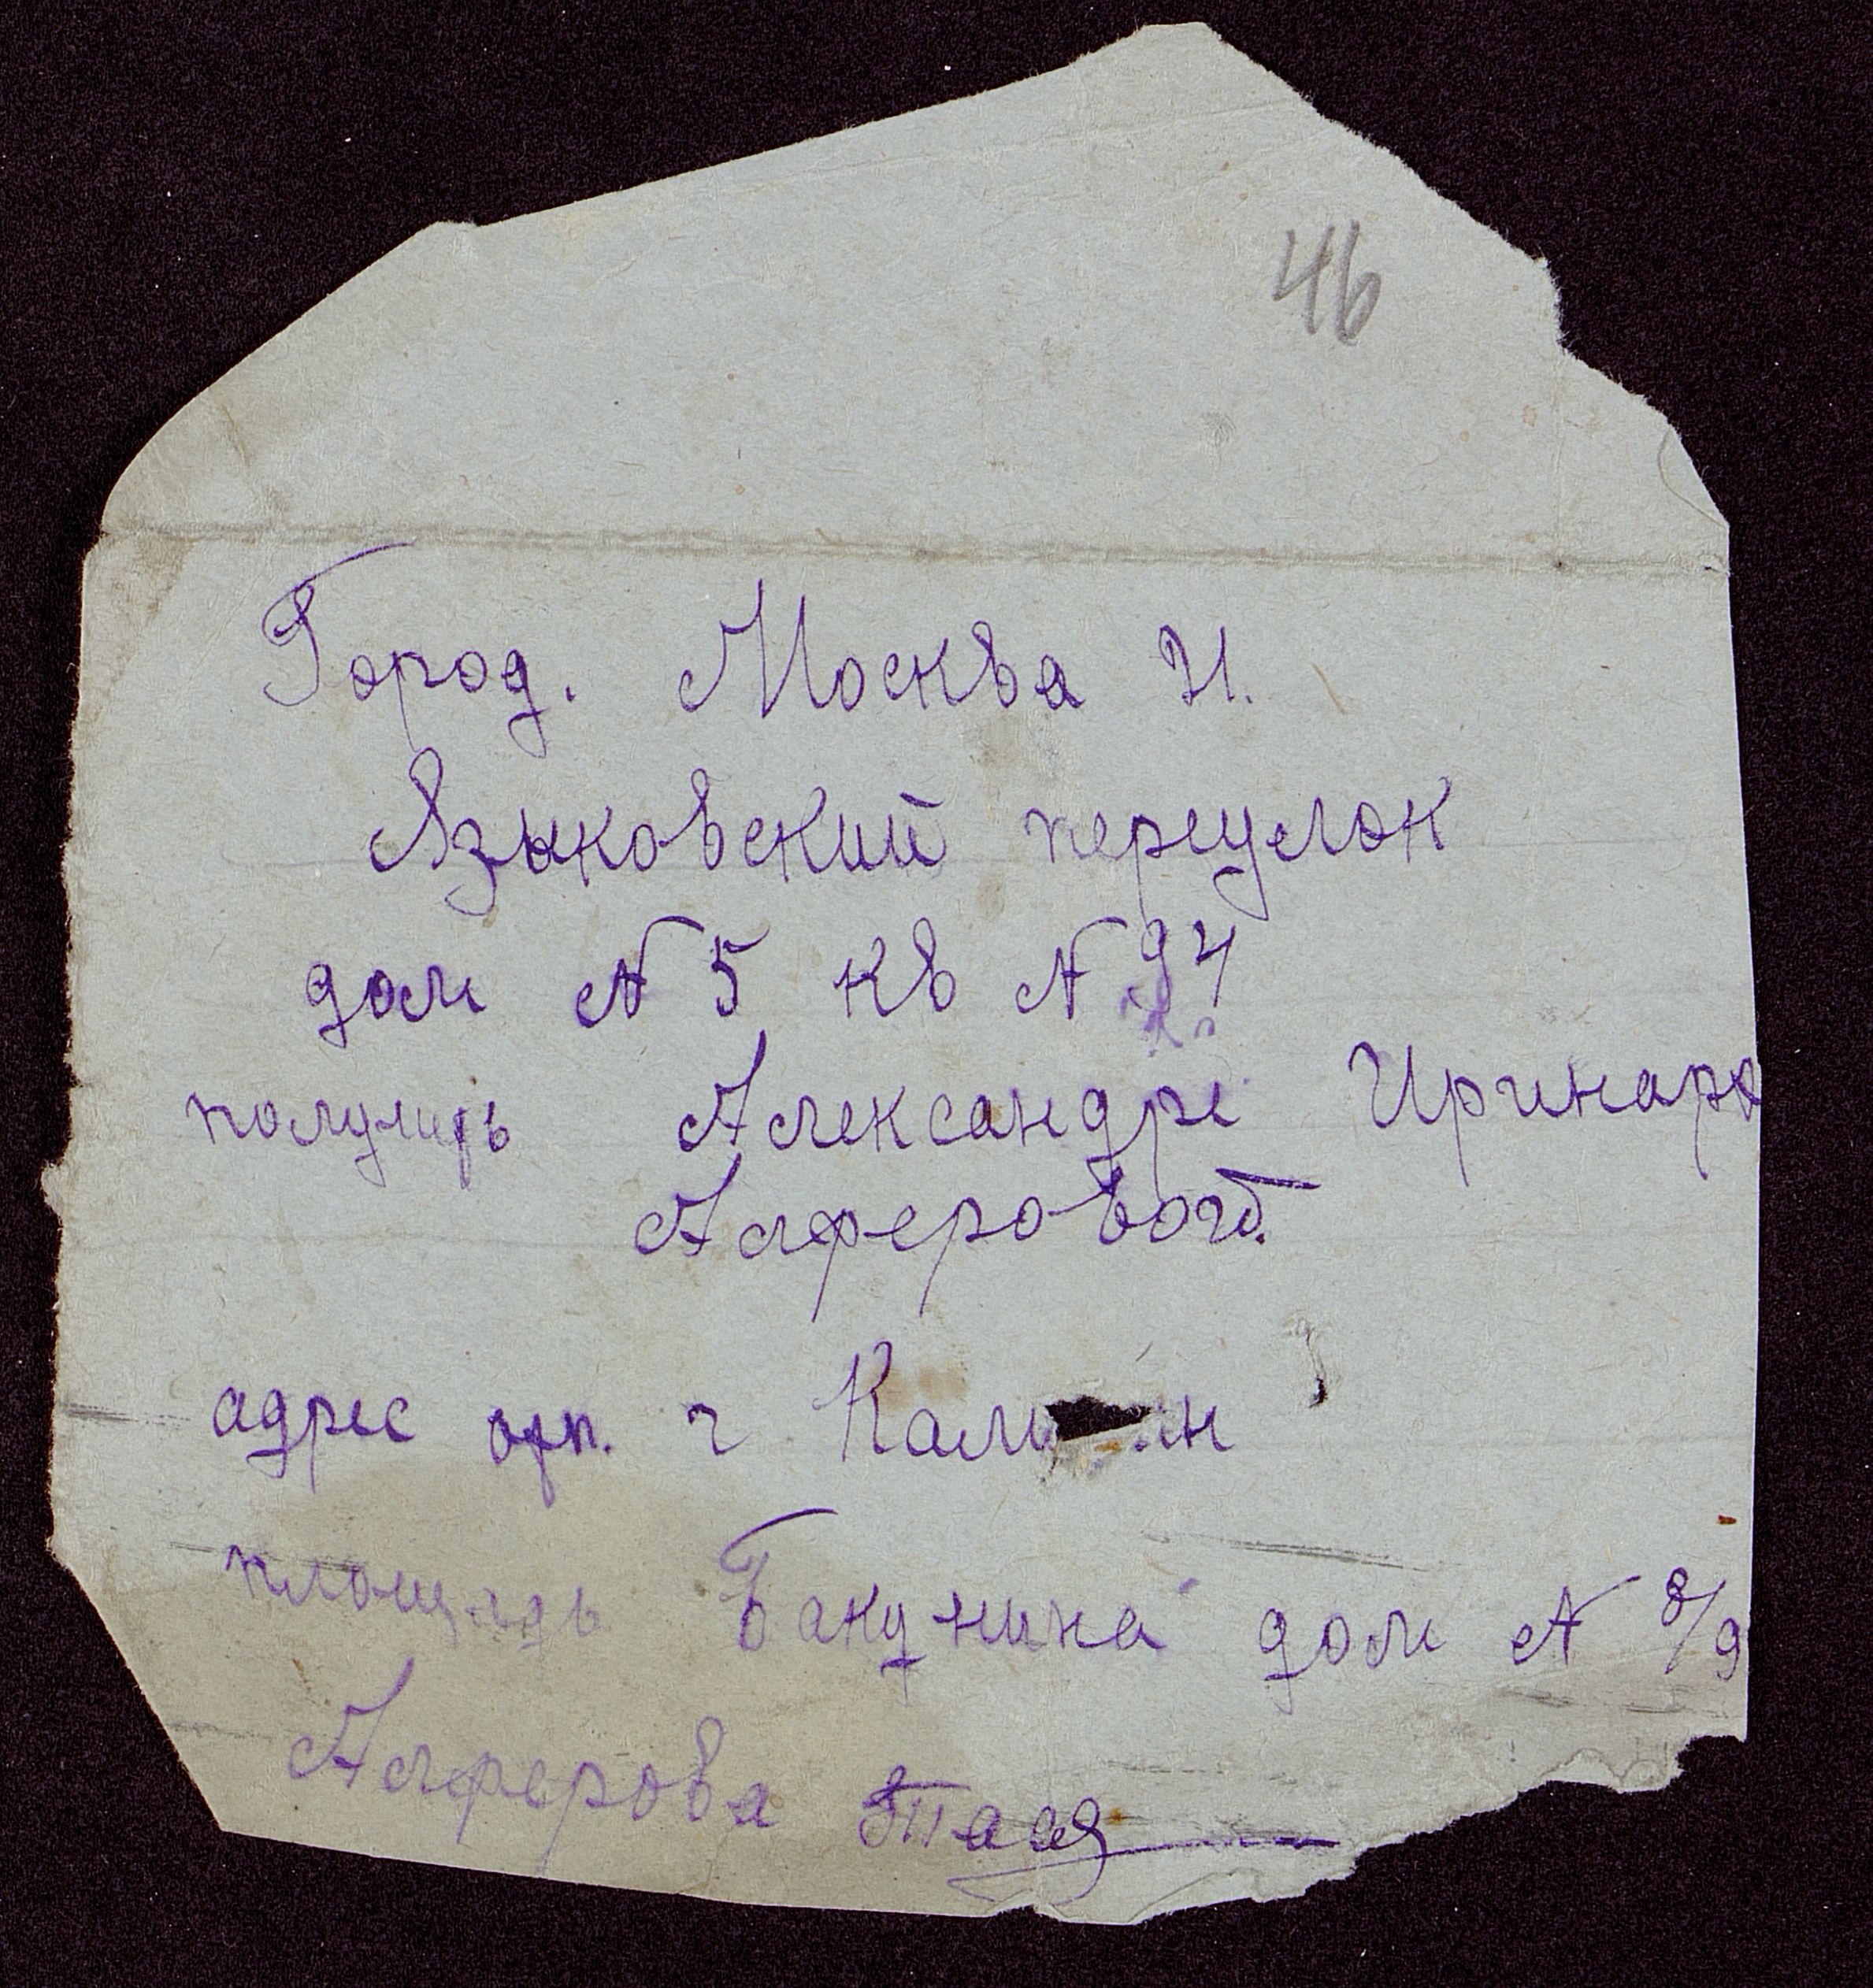 46
Город. Москва 21.
Языковский переулок
дом N 5 кв N 94
получить Александре Иринаро
Алферовой.
адрес отп. г Кали ин
площадь Бакунина дом N 8/9
Алферова Тася